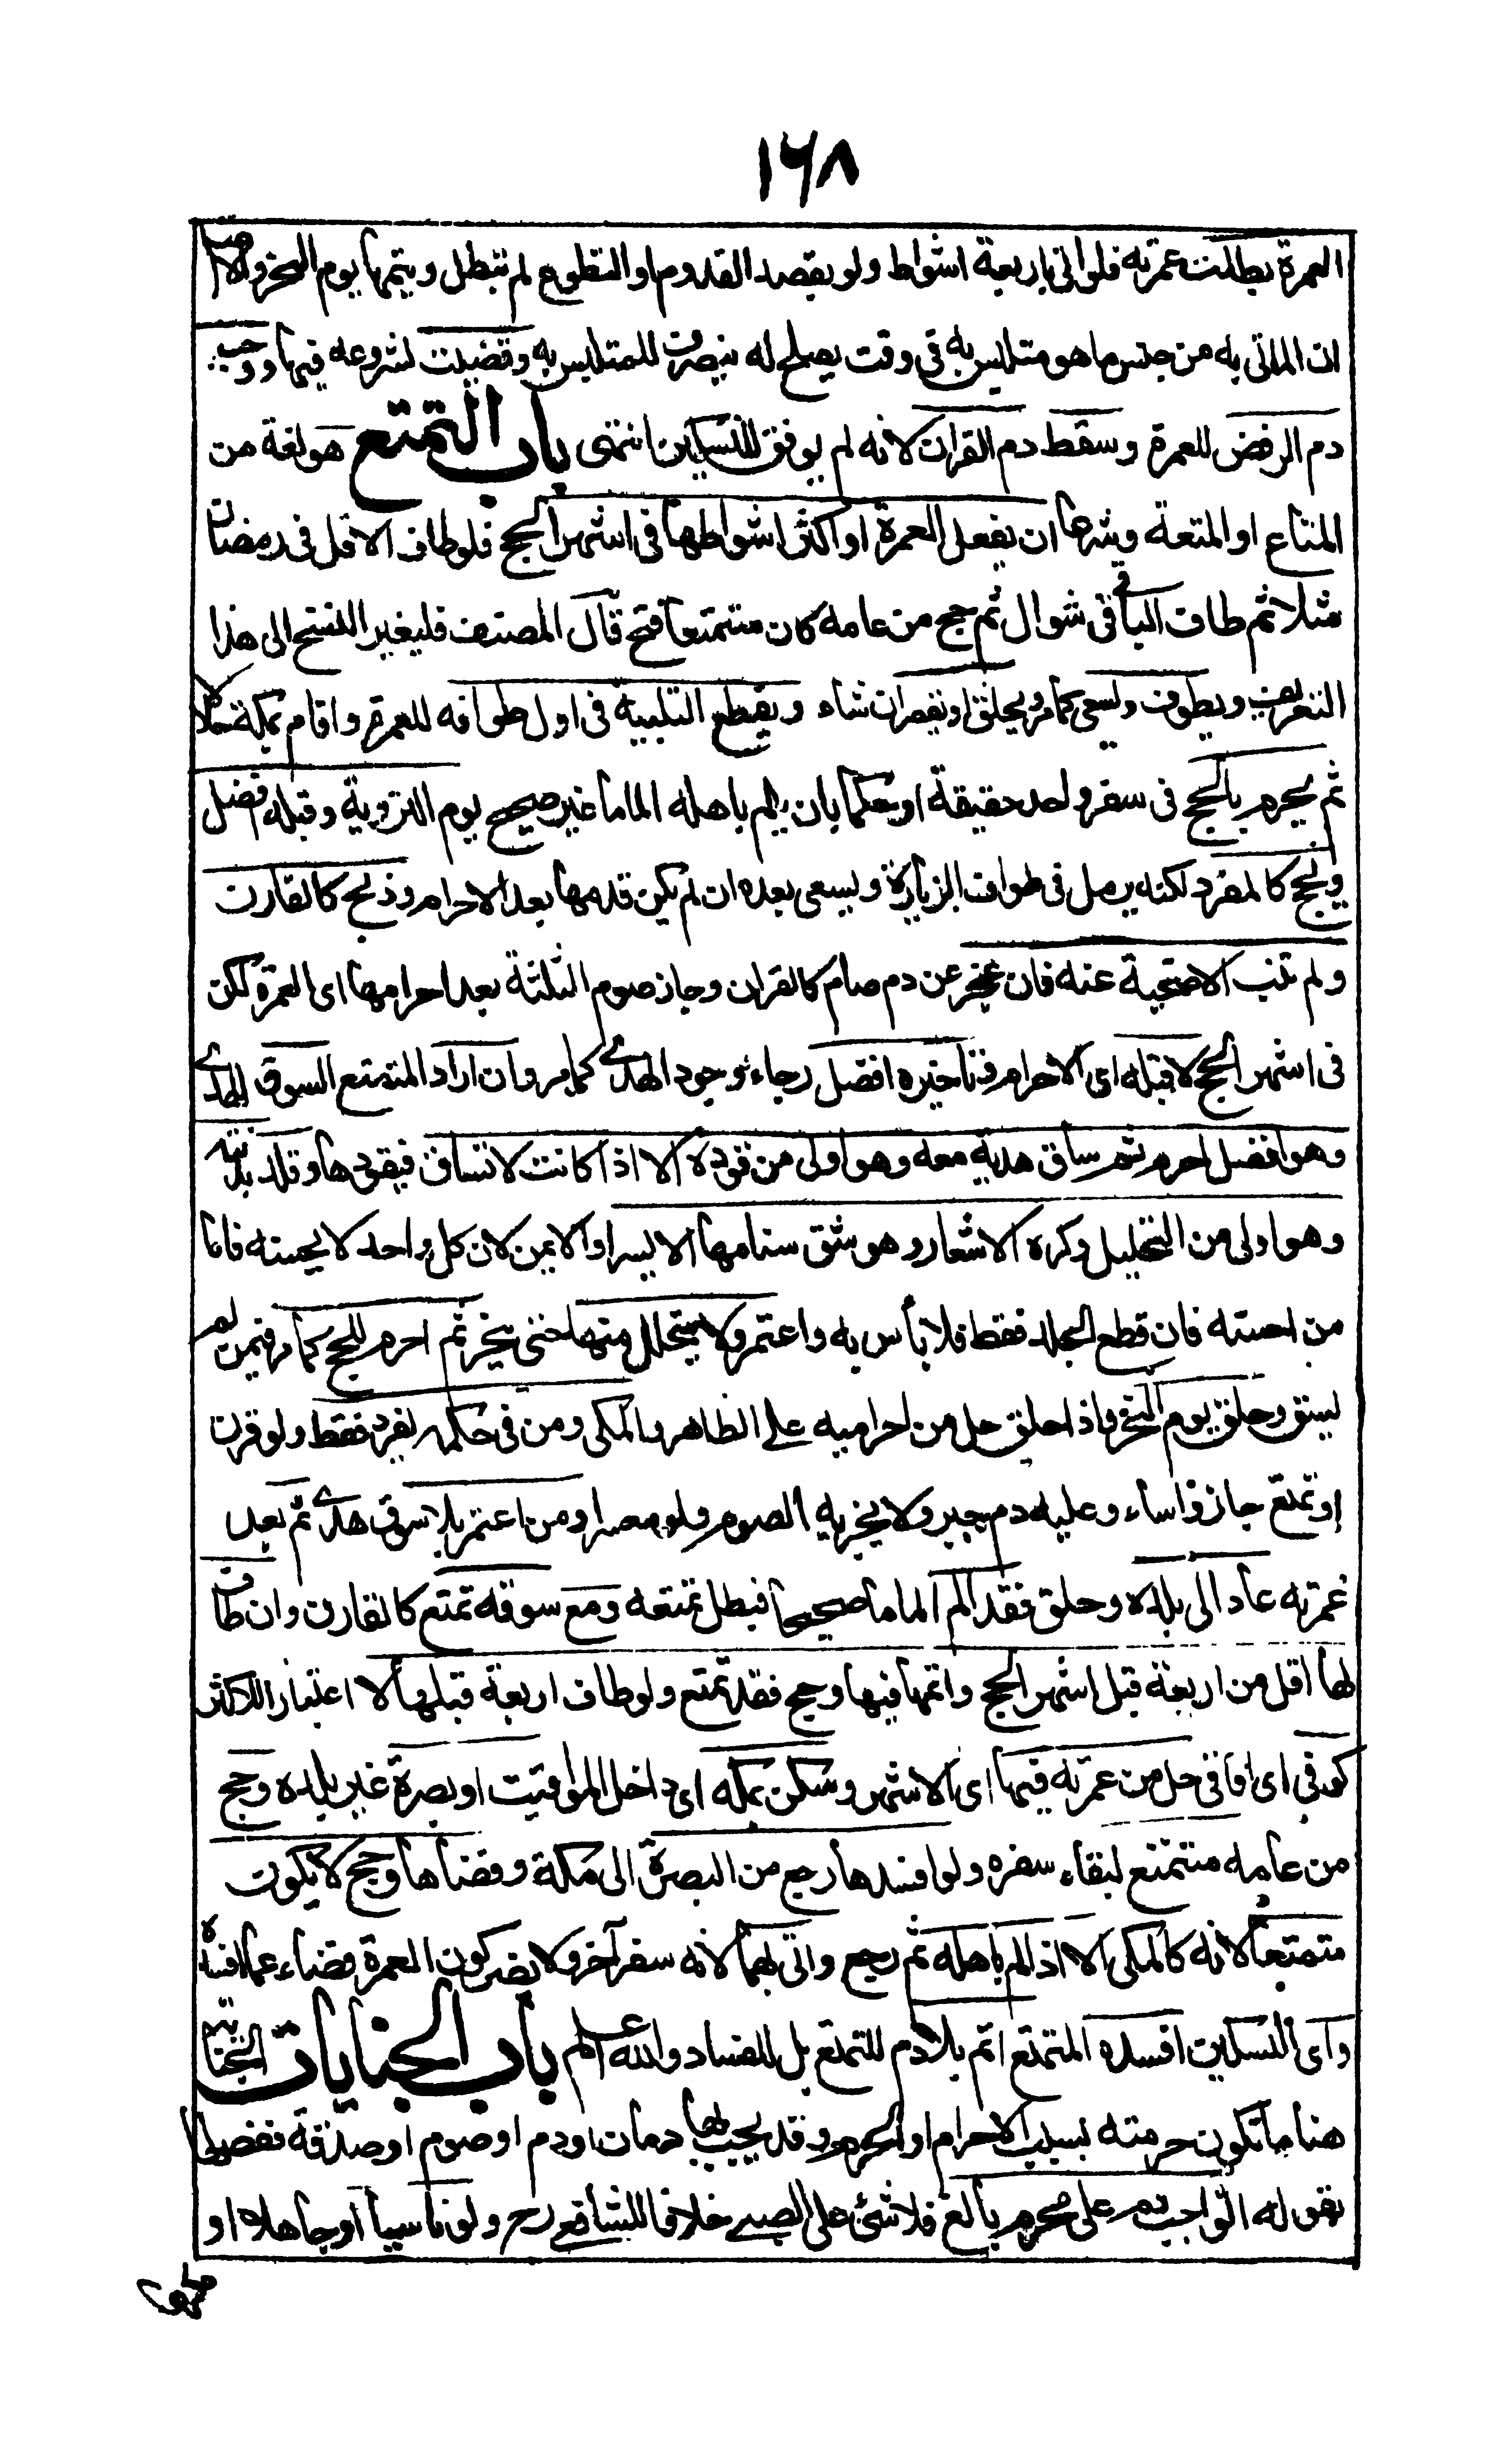 ١٦٨
العمرة بطلت عمرته فلو اتى باربعة اشواط ولو بقصد القدوم او التطوع لم تبطل ويتمها يوم النحر والاصل
ان الماتى به من جنس ما هو متلبس به فى وقت يصلح له ينصرف للمتلبس به وقضيت لشروعه فيها ووجب
دم الرفض للعمرة وسقط دم القران لانه لم يوفق للنسكين انتهى باب التمتع هو لغة من
المتاع او المتعة وشرعا ان يفعل العمرة او اكثر اشواطها فى اشهر الحج فلو طاف الاقل فى رمضان
مثلا ثم طاف الباقى فى شوال ثم حج من عامه كان متمتعا فتح قال المصنف فليغير النسخ الى هذا
التعريف ويطوف ويسعى كما مر ويحلق او يقصر ان شاء ويقطع التلبية فى اول طوافه للعمرة واقام بمكة حلالا
ثم يحرم بالحج فى سفر واحد حقيقة او حكما بان يلم باهله الماما غير صحيح يوم التروية وقبله افضل
ويحج كالمفرد لكنه يرمل فى طواف الزيارة ويسعى بعده ان لم يكن قدمهما بعد الاحرام وذبح كالقارن
ولم تنب الاضحية عنه فان عجز عن دم صام كالقران وجاز صوم الثلثة بعد احرامها اى العمرة لكن
فى اشهر الحج لا قبله اى الاحرام وتاخيره افضل رجاء وجود الهدى كما مر وان اراد المتمتع السوق للهدى
وهو افضل احرم ثم ساق هديه معه وهو اولى من قوده الا اذا كانت لا تنساق فيقودها وقلد بدنته
وهو اولى من التجليل وكره الاشعار وهو شق سنامها الايسر او الايمن لان كل واحد لا يحسنه فاما
من احسنه فان قطع الجلد فقط فلا بأس به واعتمر ولا يتحلل منها حتى ينحر ثم احرم للحج كما مر فيمن لم
يسق وحلق يوم النحر واذا حلق حل من احراميه على الظاهر والمكى ومن فى حكمه يفرد فقط ولو قرن
او تمتع جاز واساء وعليه دم جبر ولا يجزيه الصوم ولو معسرا ومن اعتمر بلا سوق هدى ثم بعد
عمرته عاد الى بلده وحلق فقد الم الماما صحيحا فبطل تمتعه ومع سوقه تمتع كالقارن وان طاف
لها اقل من اربعة قبل اشهر الحج واتمها فيها وحج فقد تمتع ولو طاف اربعة قبلها لا اعتبارا للاكثر
كوفى اى افاقى حل من عمرته فيها اى الاشهر وسكن بمكه اى داخل المواقيت او بصرة غير بلده وحج
من عامه متمتع لبقاء سفره ولو افسدها رجع من البصرة الى مكة وقضاها وحج لا يكون
متمتعا لانه كالمكى الا اذا الم باهله ثم رجع واتى بهما لانه سفر آخر ولا يضر كون العمرة قضاء عما افسده
واى النسكين افسده المتمتع اتم بلا دم للتمتع بل للفساد والله اعلم باب الجنايات الجناية
هنا ما تكون حرمته بسبب الاحرام او الحرم وقد يجب بها دمان او دم او صوم او صدقة ففصلها
بقوله الواجب دم على محرم بالغ فلا شئ على الصبى خلافا للشافعى رح ولو ناسيا او جاهلا او